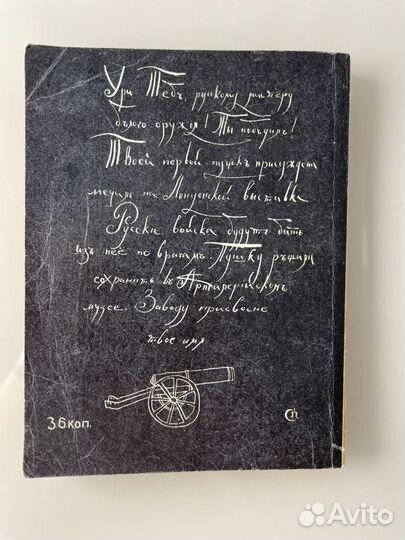 Ура Тебѣ, русскому мастеру
бѣлого оружія! Ты побѣдилъ!
Твоей первой пушкѣ присуждена
медаль на Лондонской выставкѣ
Русскія войска будутъ бить
изъ неё по врагамъ. Пушку рѣшили
сохранить въ Артиллерійскомъ
музее. Заводу присвоено
твое имя
36 коп.
Avito